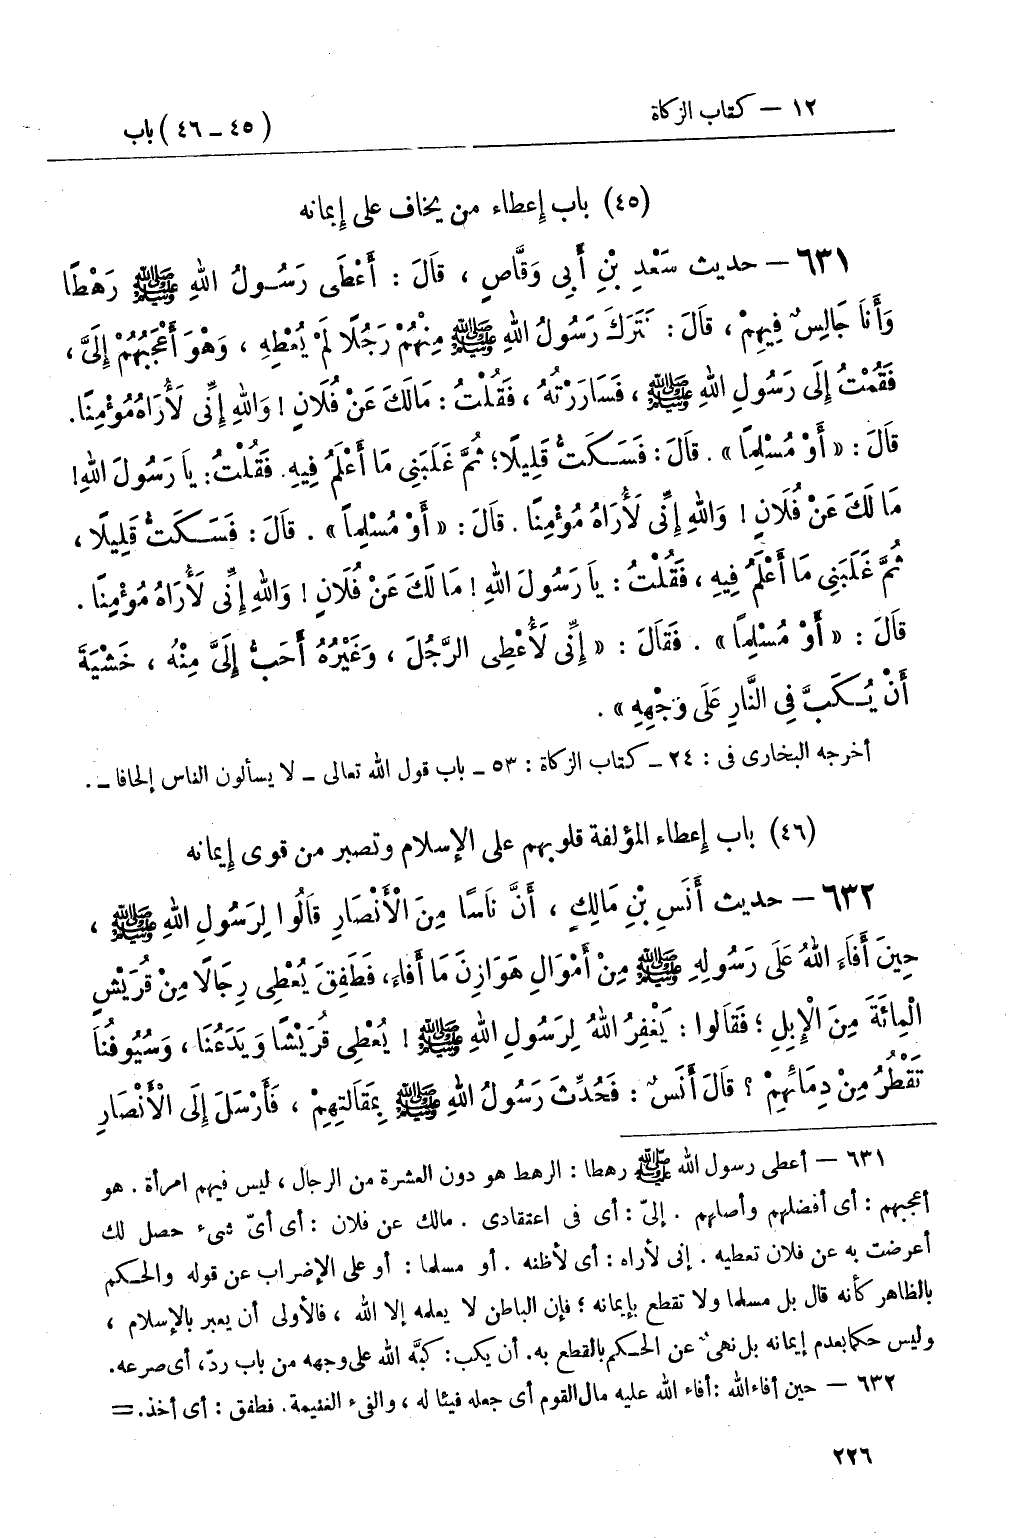 ١٢ – كتاب الزكاة
(٤٥ – ٤٦) باب
(٤٥) باب إعطاء من يخاف على إيمانه
٦٣١ – حديث سَعْدِ بْنِ أَبِى وَقَّاصٍ ، قَالَ : أَعْطَى رَسُولُ اللهِ ﷺ رَهْطًا
وَأَنَا جَالِسٌ فِيهِمْ ، قَالَ : فَتَرَكَ رَسُولُ اللهِ ﷺ مِنْهُمْ رَجُلًا لَمْ يُعْطِهِ ، وَهْوَ أَعْجَبُهُمْ إِلَىَّ ،
فَقُمْتُ إِلَى رَسُولِ اللهِ ﷺ ، فَسَارَرْتُهُ ، فَقُلْتُ : مَالَكَ عَنْ فُلَانٍ ! وَاللهِ إِنِّى لَأُرَاهُ مُؤْمِنًا.
قَالَ : « أَوْ مُسْلِمًا » . قَالَ : فَسَكَتُّ قَلِيلًا؛ ثُمَّ غَلَبَنِى مَا أَعْلَمُ فِيهِ. فَقُلْتُ : يَا رَسُولَ اللهِ!
مَا لَكَ عَنْ فُلَانٍ ! وَاللهِ إِنِّى لَأُرَاهُ مُؤْمِنًا . قَالَ : « أَوْ مُسْلِماً » . قَالَ : فَسَكَتُّ قَلِيلًا ،
ثُمَّ غَلَبَنِى مَا أَعْلَمُ فِيهِ ، فَقُلْتُ : يَا رَسُولَ اللهِ ! مَا لَكَ عَنْ فُلَانٍ ! وَاللهِ إِنِّى لَأُرَاهُ مُؤْمِنًا .
قَالَ : « أَوْ مُسْلِماً » . فَقَالَ : « إِنِّى لَأُعْطِى الرَّجُلَ ، وَغَيْرُهُ أَحَبُّ إِلَىَّ مِنْهُ ، خَشْيَةَ
أَنْ يُكَبَّ فِى النَّارِ عَلَى وَجْهِهِ » .
أخرجه البخارى فى : ٢٤ – كتاب الزكاة : ٥٣ – باب قول الله تعالى – لا يسألون الناس إلحافا – .
(٤٦) باب إعطاء المؤلفة قلوبهم على الإسلام وتصبر من قوى إيمانه
٦٣٢ – حديث أَنَسِ بْنِ مَالِكٍ ، أَنَّ نَاسًا مِنَ الْأَنْصَارِ قَالُوا لِرَسُولِ اللهِ ﷺ ،
حِينَ أَفَاءَ اللهُ عَلَى رَسُولِهِ ﷺ مِنْ أَمْوَالِ هَوَازِنَ مَا أَفَاءَ، فَطَفِقَ يُعْطِى رِجَالًا مِنْ قُرَيْشٍ
الْمِائَةَ مِنَ الْإِبِلِ ؛ فَقَالُوا : يَغْفِرُ اللهُ لِرَسُولِ اللهِ ﷺ ! يُعْطِى قُرَيْشًا وَيَدَعُنَا ، وَسُيُوفُنَا
تَقْطُرُ مِنْ دِمَائِهِمْ ؟ قَالَ أَنَسٌ : فَحُدِّثَ رَسُولُ اللهِ ﷺ بِمَقَالَتِهِمْ ، فَأَرْسَلَ إِلَى الْأَنْصَارِ
٦٣١ – أعطى رسول الله ﷺ رهطا : الرهط هو دون العشرة من الرجال ، ليس فيهم امرأة . هو
أعجبهم : أى أفضلهم وأصلهم . إلىّ : أى فى اعتقادى . مالك عن فلان : أى أىّ شىء حصل لك
أعرضت به عن فلان تعطيه . إنى لأراه : أى لأظنه . أو مسلما : أو على الإضراب عن قوله والحكم
بالظاهر كأنه قال بل مسلما ولا تقطع بإيمانه ؛ فإن الباطن لا يعلمه إلا الله ، فالأولى أن يعبر بالإسلام ،
وليس حكما بعدم إيمانه بل نهىٌ عن الحكم بالقطع به. أن يكب : كبَّه الله على وجهه من باب ردّ، أى صرعه.
٦٣٢ – حين أفاء الله : أفاء الله عليه مال القوم أى جعله فيئا له ، والفىء الغنيمة. فطفق : أى أخذ. =
٢٢٦